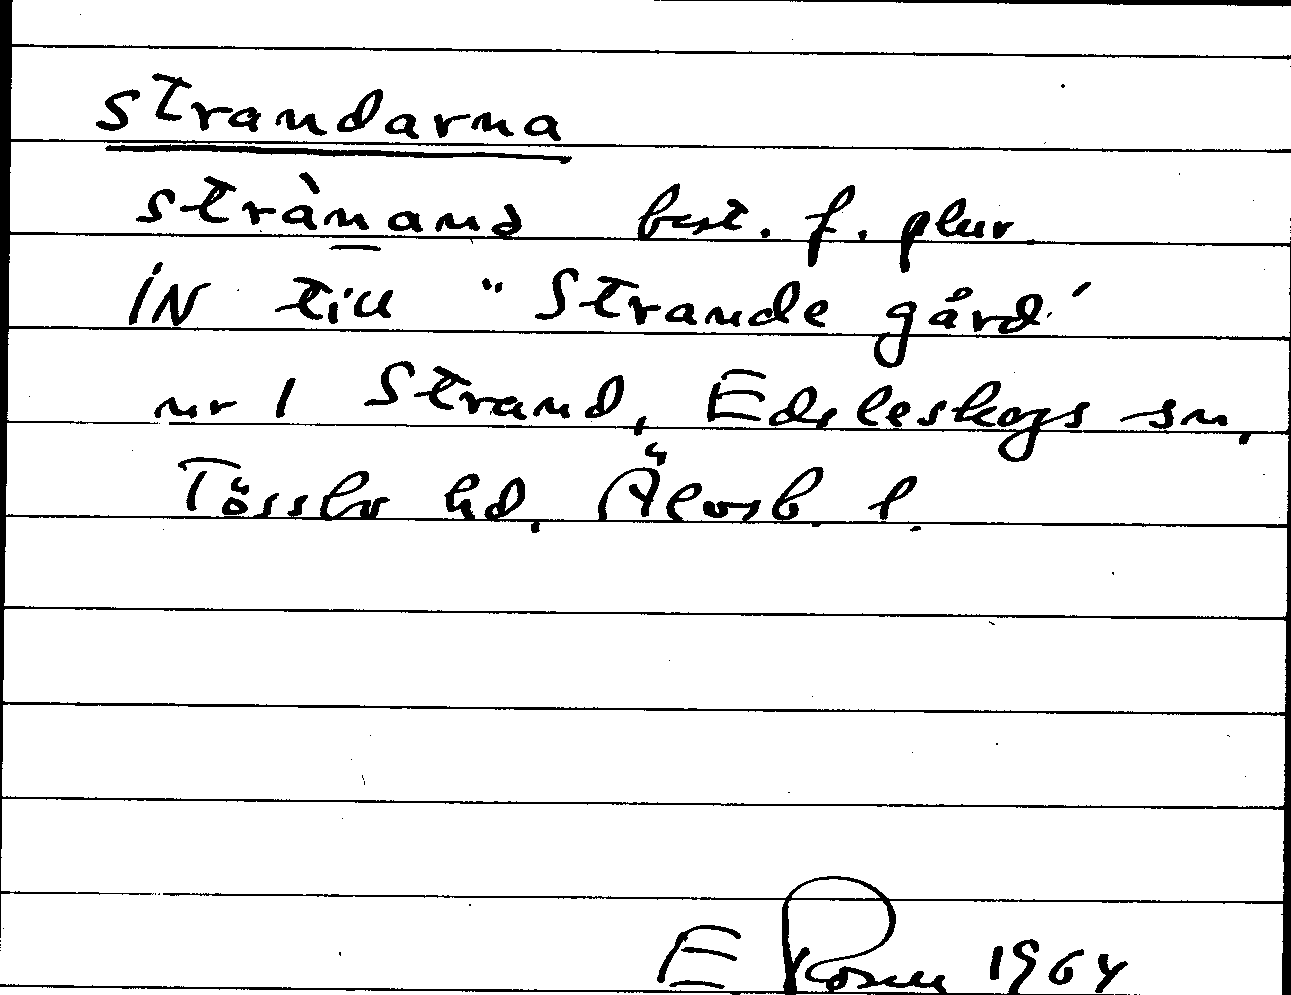 Strandarna
stràn̲anə best. f. plur.
iN till "Strande gård"
nr 1 Strand, Edsleskogs sn,
Tössbo hd, Älvsb. l.
E Rosen 1964